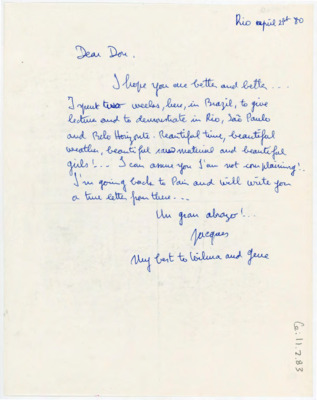 Rio april 21st 80
Dear Don.
I hope you are better and better...
I spent two weeks, here, in Brazil, to give
lecture and to demonstrate in Rio, Saõ Paulo
and Belo Horizonte. Beautiful time, beautiful
weather, beautiful raw material and beautiful
girls!... I can assure you I'am not complaining!.
I'm going back to Paris and will write you
a true letter from there...
Un gran abrazo!...
Jacques
My best to Wilma and Gene